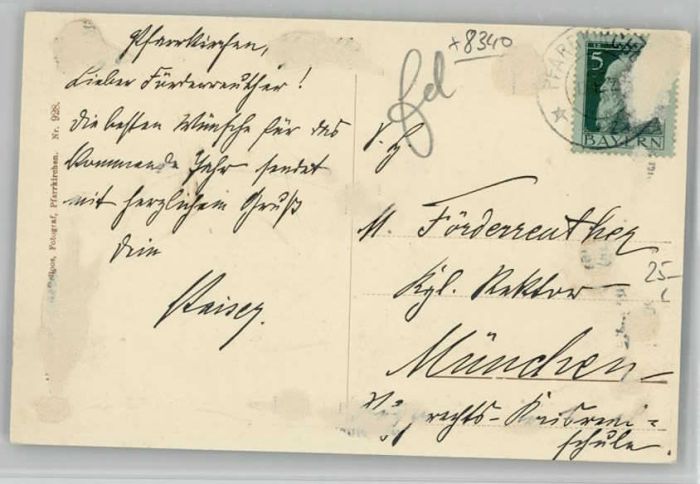 Pfarrkirchen,
Lieber Förderreuther!
Die besten Wünsche für das
kommende Jahr sendet
mit herzlichem Gruß
Dein
Fotograf, Pfarrkirchen. Nr. 928.
+8340
5
BAYERN
PFARR
S. H.
M. Förderreuther
Kgl. Rektor
München
rechts-Kreisreal=
schule.
25-